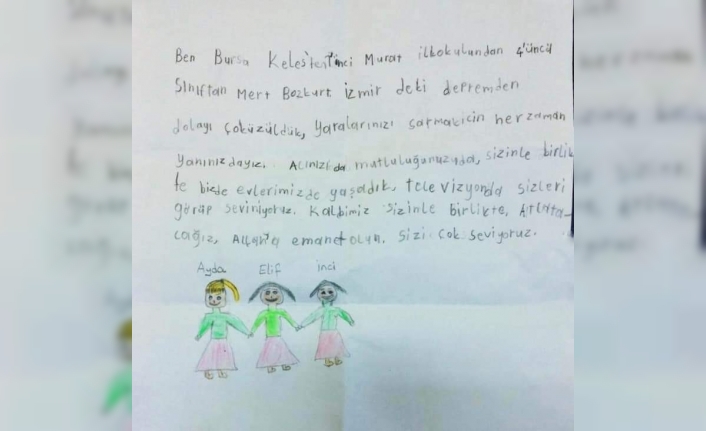 Ben Bursa Keles'ten 1'inci Murat ilkokulundan 4'üncü
Sınıftan Mert Bozkurt İzmir deki depremden
dolayı çoküzüldük, yaralarınızı sarmakicin her zaman
yanınızdayız. Acınızı da mutluluğunuzuda, sizinle birlik
te bizde evlerimizde yaşadık, televizyonda sizleri
görüp seviniyoruz. Kalbimiz sizinle birlikte, Atlata-
cağız, Allah'a emanet olun. Sizi çok seviyoruz.
Ayda Elif inci